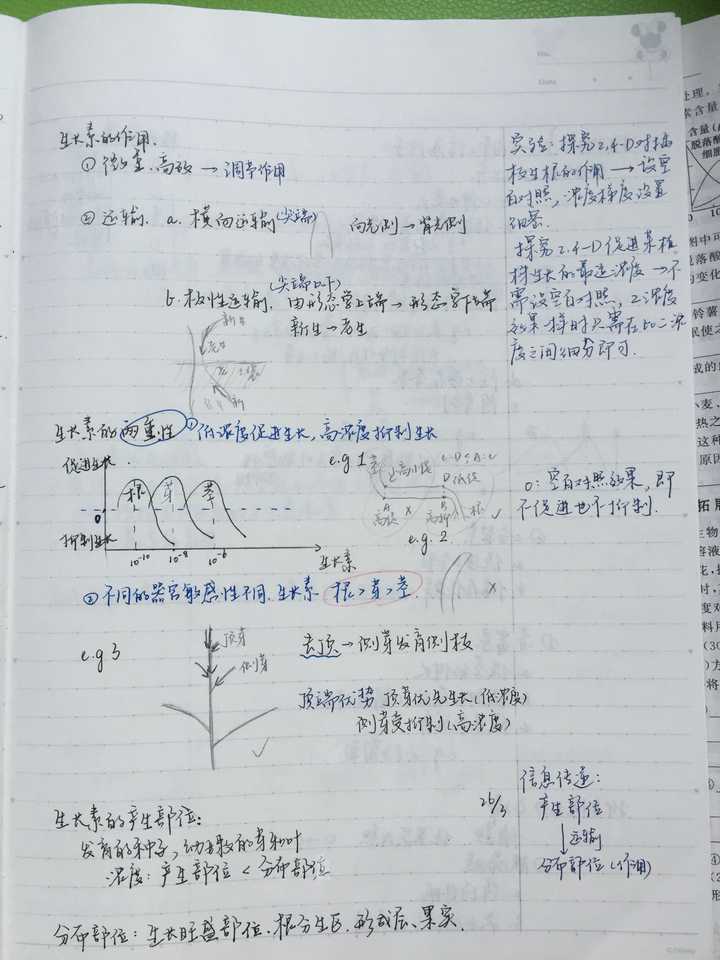 生长素的作用.
① 微量.高效 → 调节作用
② 运输. a. 横向运输(尖端) 向光侧→背光侧
(尖端以下)
b. 极性运输. 由形态学上端→形态学下端
新生→老生
生长素的两重性 ① 低浓度促进生长,高浓度抑制生长
促进生长
根 芽 茎
0
抑制生长
10⁻¹⁰ 10⁻⁸ 10⁻⁶
生长素
e.g 1
e.g. 2
② 不同的器官敏感性不同. 生长素 根>芽>茎.
e.g 3
顶芽
侧芽
去顶→侧芽发育侧枝
顶端优势 顶芽优先生长(低浓度)
侧芽受抑制(高浓度)
生长素的产生部位:
发育的种子,幼嫩的芽和叶
浓度: 产生部位 < 分布部位
26/3
分布部位: 生长旺盛部位.根分生区.形成层、果实.
实验: 探究2,4-D对插
枝生根的作用 → 设空
白对照,浓度梯度设置
细密.
探究2.4-D促进某植
株生长的最适浓度→不
需设空白对照, 2浓度
效果一样时只需在此二浓
度之间细分即可.
0: 空白对照效果, 即
不促进也不抑制.
信息传递:
产生部位
↓运输
分布部位(作用)